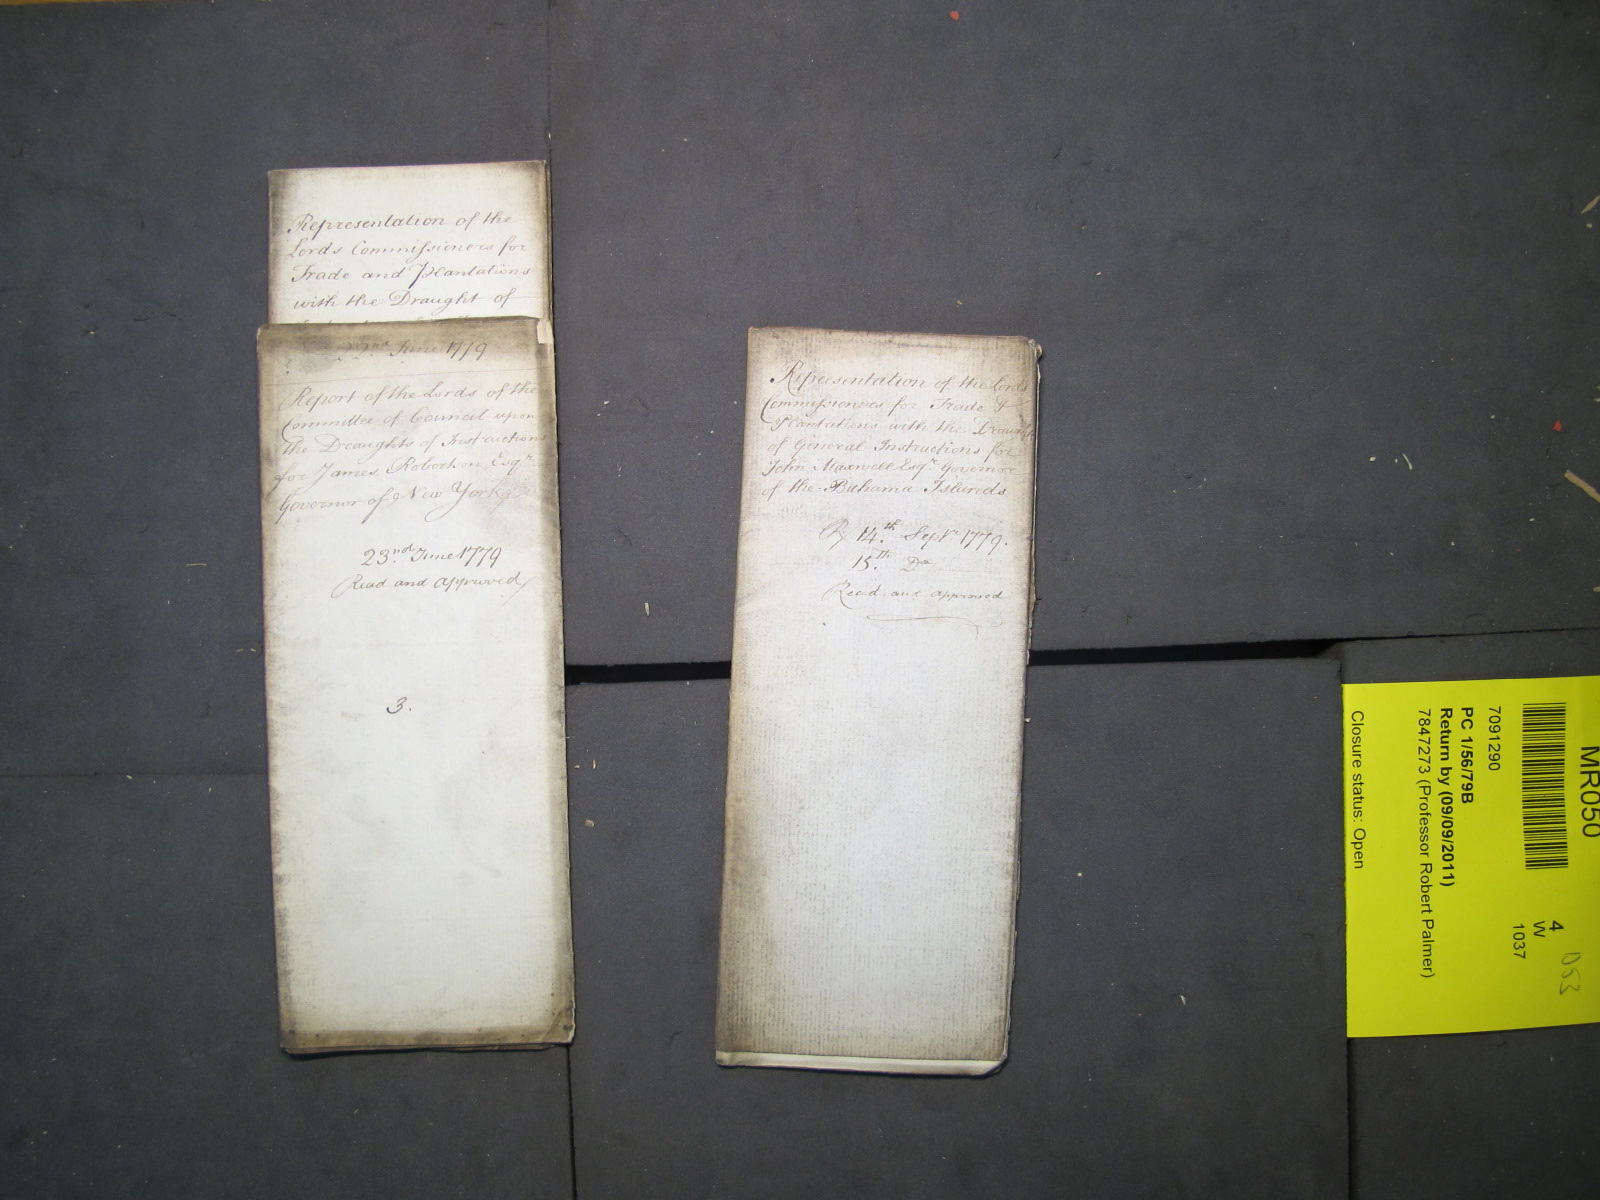 Representation of the
Lords Commissioners for
Trade and Plantations
with the Draught of
22nd June 1779
Report of the Lords of the
Committee of Council upon
the Draughts of Instructions
for James Robertson Esqr.
Governor of New York
23rd June 1779
Read and approved
3.
Representation of the Lords
Commissioners for Trade &
Plantations with the Draught
of General Instructions for
John Maxwell Esqr. Governor
of the Bahama Islands
R 14th. Septr. 1779.
15th. Do
Read and approved
MR050
7091290
PC 1/56/79B
Return by (09/09/2011)
7847273 (Professor Robert Palmer)
Closure status: Open
4
W
1037